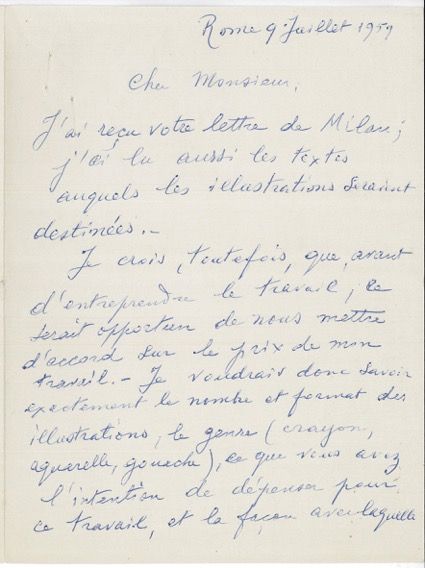 Rome 9 Juillet 1959
Cher Monsieur,
J'ai reçu votre lettre de Milan;
j'ai lu aussi les textes
auxquels les illustrations seraient
destinées. -
Je crois, toutefois, que, avant
d'entreprendre le travail, ce
serait opportun de nous mettre
d'accord sur le prix de mon
travail. - Je voudrais donc savoir
exactement le nombre et format des
illustrations, le genre (crayon,
aquarelle, gouache), ce que vous avez
l'intention de dépenser pour
ce travail, et la façon avec laquelle